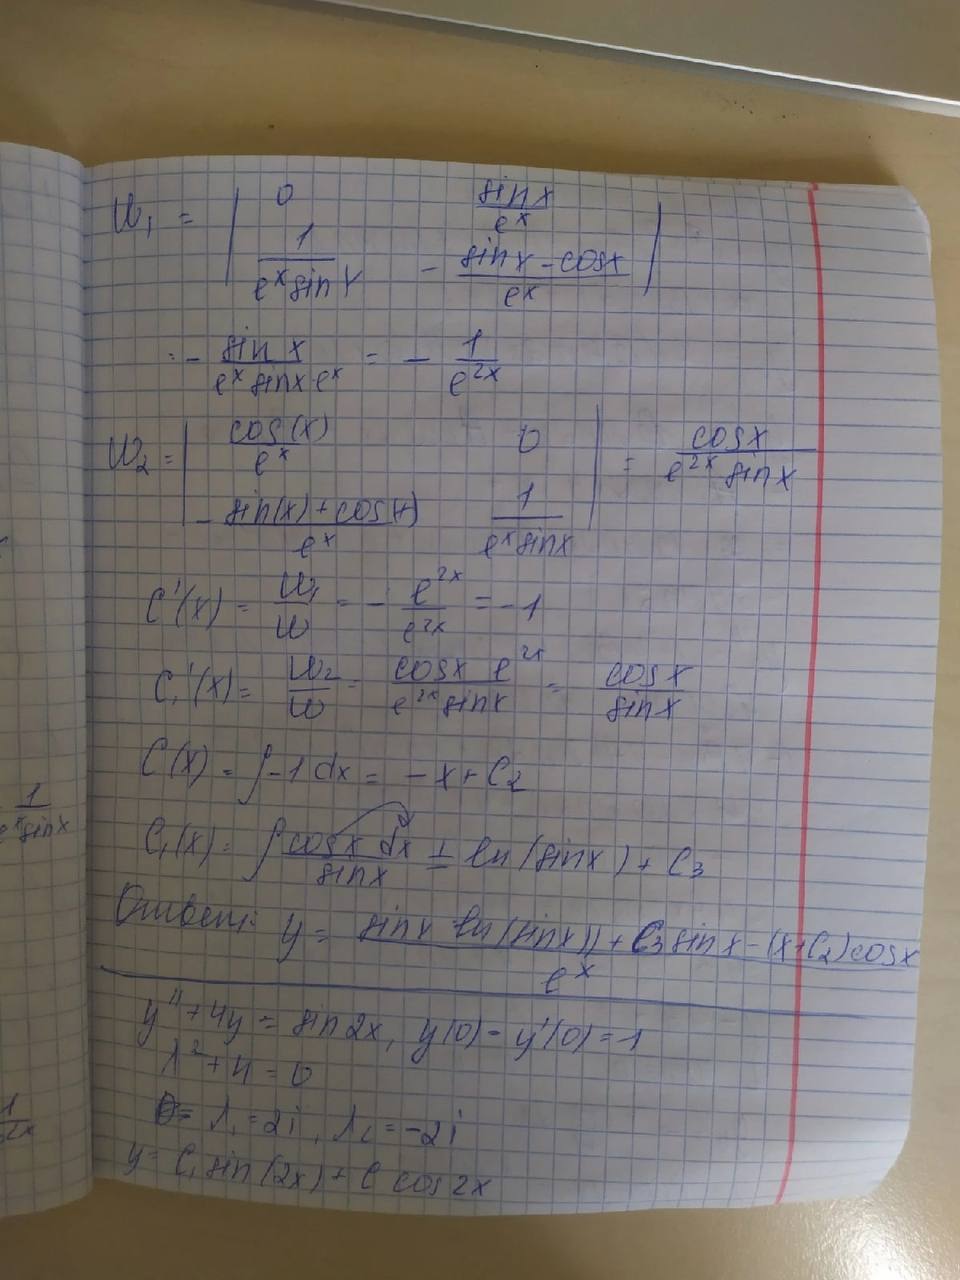 W₁ = | 0   sinx/eˣ |
| 1/(eˣsinx)   -(sinx-cosx)/eˣ |
= - sinx/(eˣsinx·eˣ) = - 1/e²ˣ
W₂ = | cos(x)/eˣ   0 | = cosx/(e²ˣsinx)
| -(sin(x)+cos(x))/eˣ   1/(eˣsinx) |
C'(x) = W₁/W = - e²ˣ/e²ˣ = -1
C₁'(x) = W₂/W = cosx e²ˣ/(e²ˣsinx) = cosx/sinx
C(x) = ∫-1dx = -x+C₂
1/(eˣsinx)
C₁(x) = ∫cosx dx/sinx = ln(sinx)+C₃
Ответ: y = (sinx ln(sinx))+C₃sinx-(x+C₂)cosx)/eˣ
y''+4y = sin2x, y(0)=y'(0)=1
λ²+4=0
λ₁=2i, λ₂=-2i
y= C₁sin(2x)+C cos2x